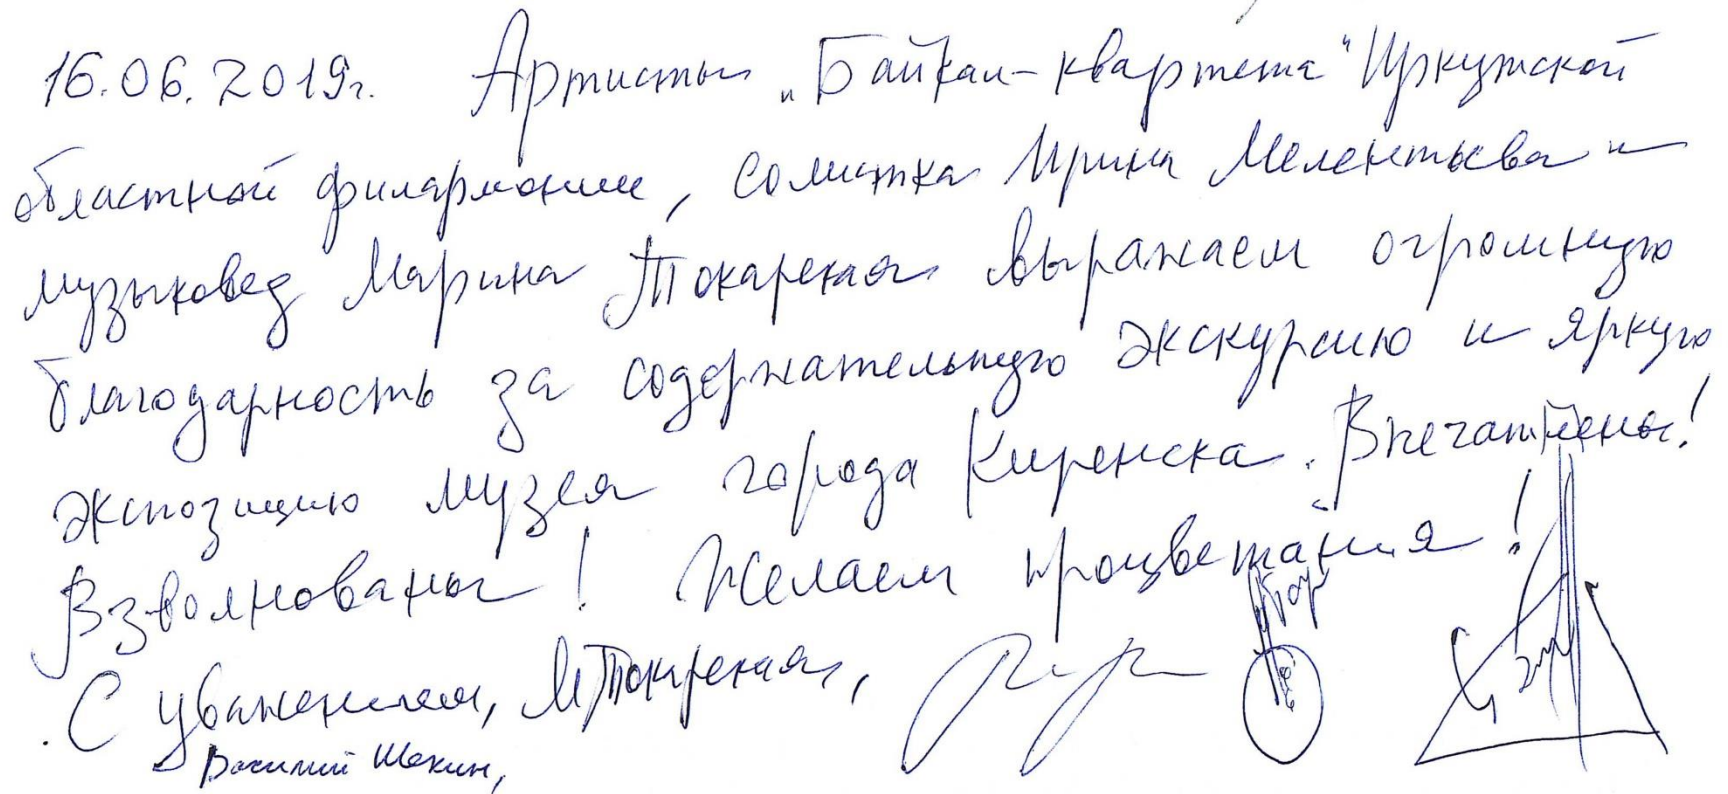 16.06.2019г. Артисты „Байкал-квартета" Иркутской
областной филармонии, солистка Ирина Мелентьева и
музыковед Марина Токарская выражаем огромную
благодарность за содержательную экскурсию и яркую
экспозицию музея города Киренска. Впечатлены!
Взволнованы! Желаем процветания!
С уважением, МТокарская,
Василий Шокин,